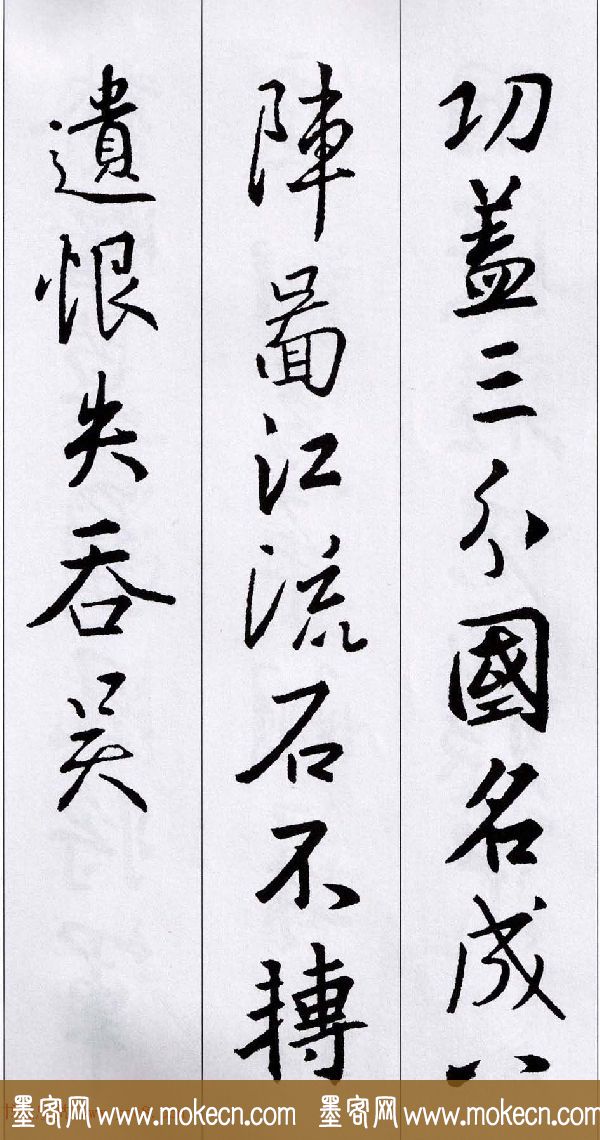 功蓋三分國名成八
陣圖江流石不轉
遺恨失吞吴
墨客网 www.mokecn.com 墨客网 www.mokecn.com